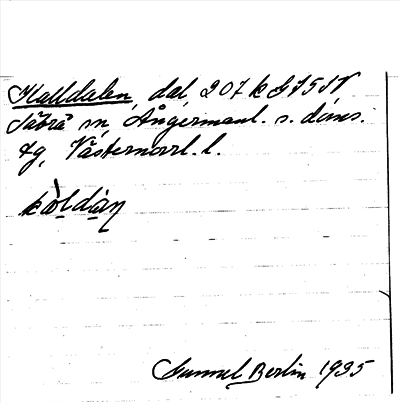 Kalldalen, dal, 207 k G 15 SV
Säbrå sn, Ångermanl. s. doms.
tg, Västernorrl. l.
kòldàn
Gunnel Berlin 1935